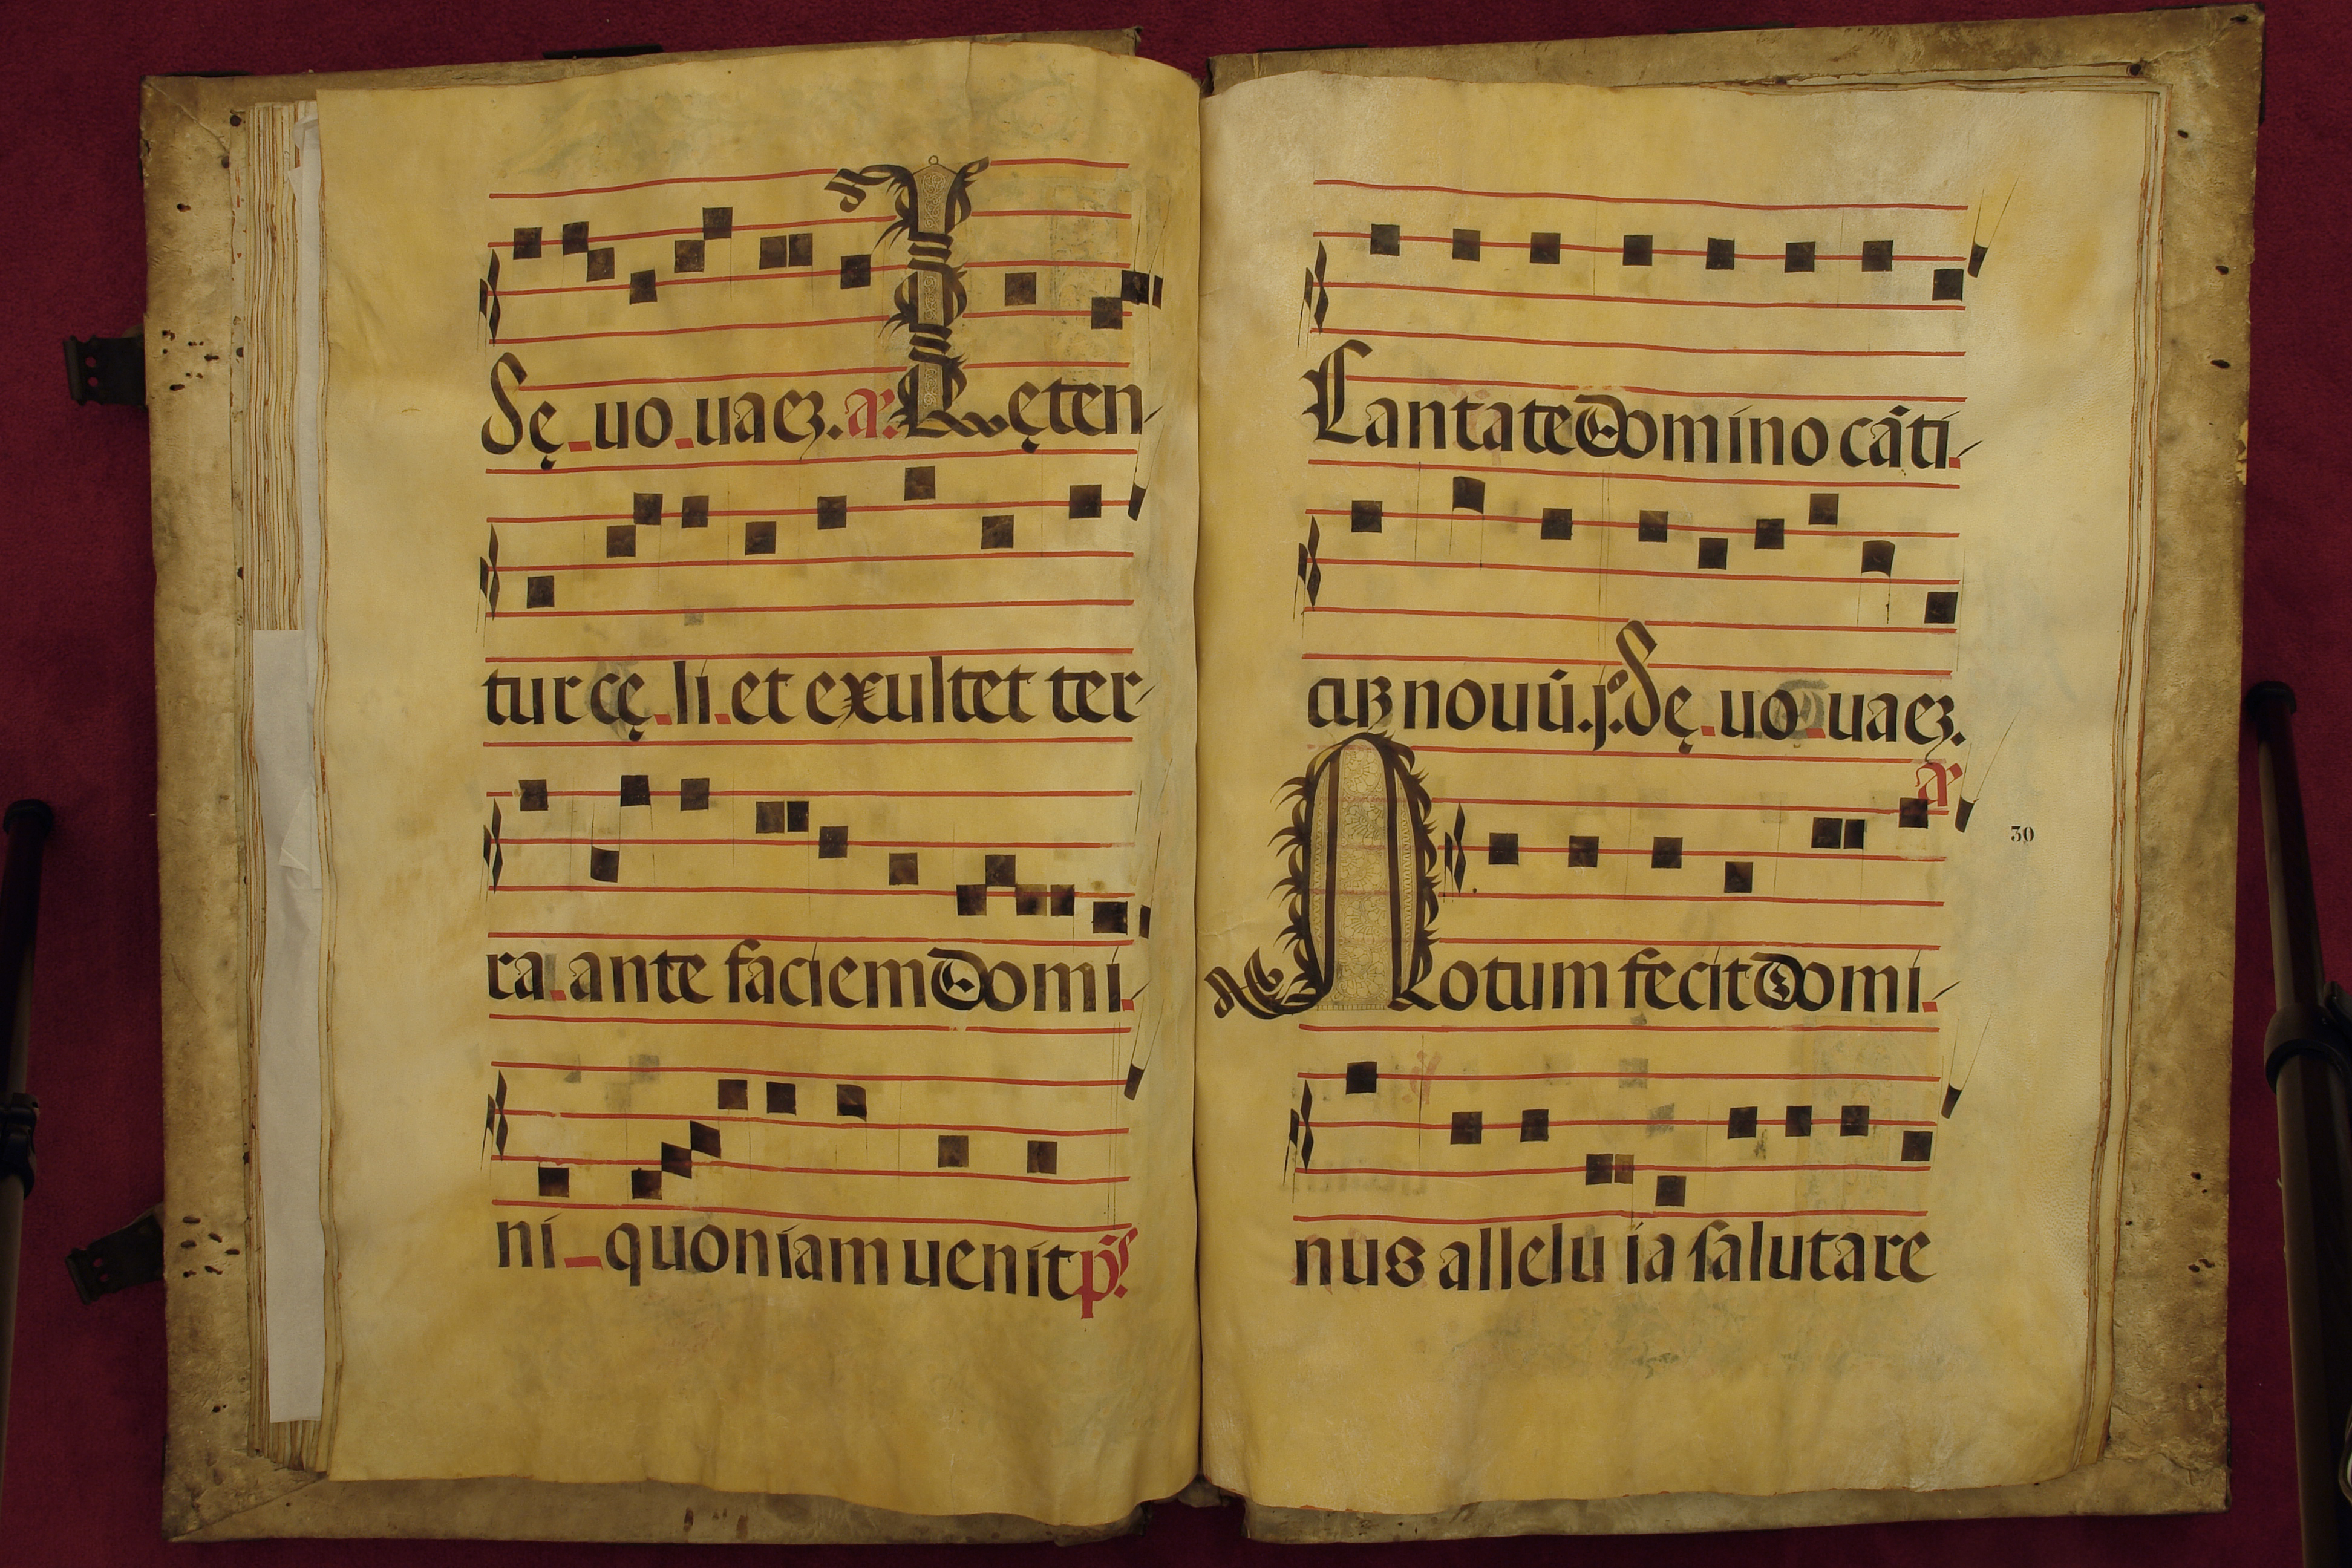 Sę uo uaeȝ. aͬ. Lęten
tur cę li et exultet ter
ra ante faciem Domi
ni quoniam uenit p̄s.
Cantate Domino cāti
cuȝ nouū. ps. Sę uo uaeȝ.
a
Notum fecit Domi
30
nus allelu ia salutare